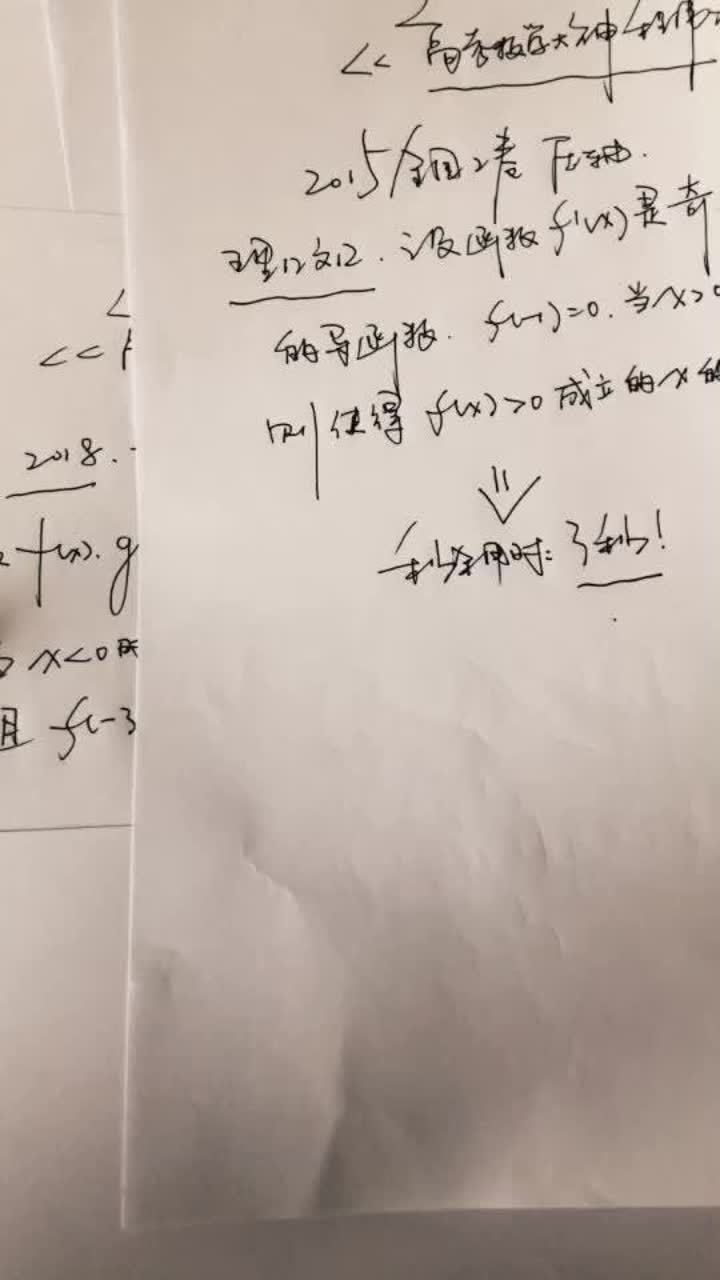 <<高考数学大神
2015全国2卷 压轴.
理12文12. 设函数 f'(x) 是奇
的导函数. f(-1)=0. 当x>0
则使得 f(x)>0 成立的x的
秒杀用时: 3秒!
<<
2018.
f(x). g
x<0时
且 f(-3